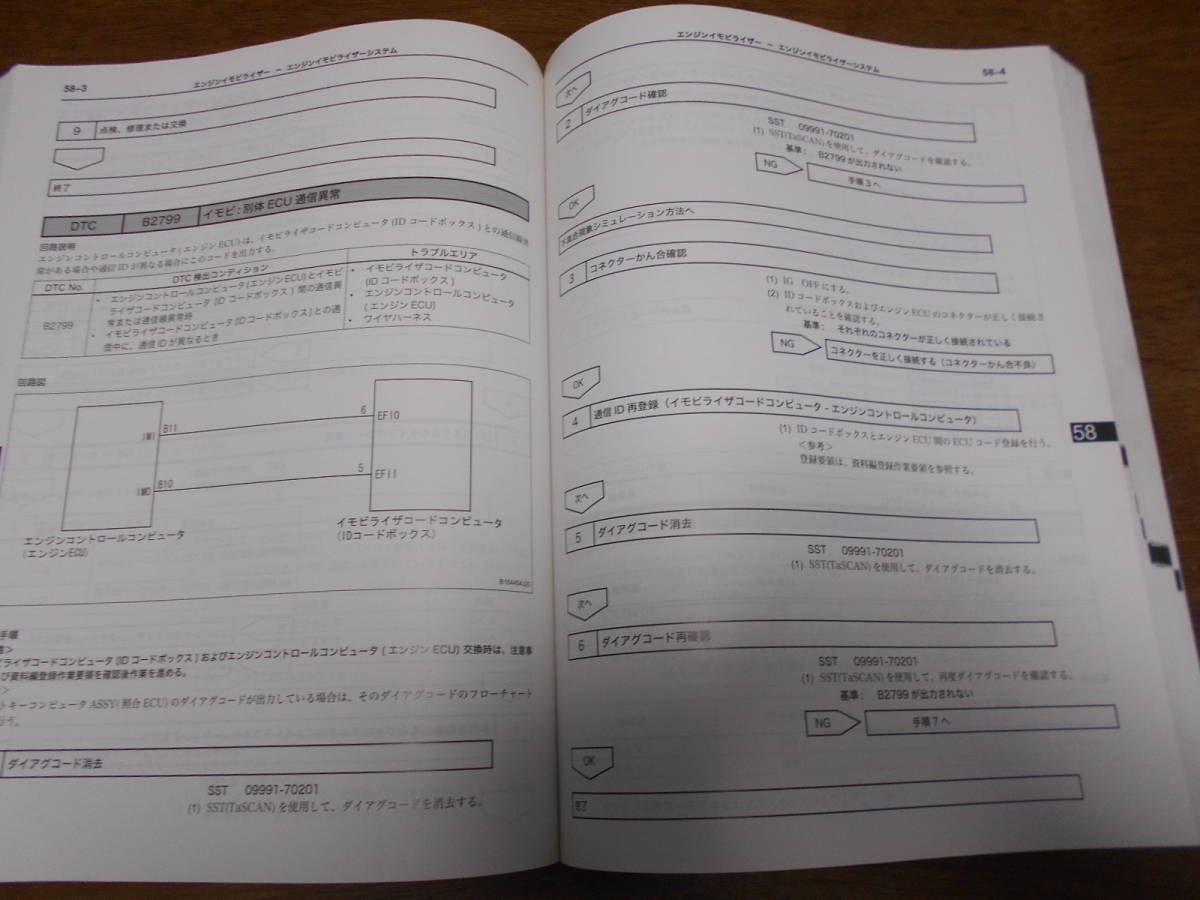 58-3
エンジンイモビライザー − エンジンイモビライザーシステム
9 点検、修理または交換
終了
DTC B2799 イモビ：別体ECU通信異常
回路説明
エンジンコントロールコンピュータ(エンジンECU)は、イモビライザコードコンピュータ(IDコードボックス)との通信線異
常がある場合や通信IDが異なる場合にこのコードを出力する。
DTC No. DTC検出コンディション トラブルエリア
B2799
• エンジンコントロールコンピュータ(エンジンECU)とイモビ
ライザコードコンピュータ(IDコードボックス)間の通信異
常または通信線異常時
• イモビライザコードコンピュータ(IDコードボックス)との通
信中に、通信IDが異なるとき
• イモビライザコードコンピュータ
(IDコードボックス)
• エンジンコントロールコンピュータ
(エンジンECU)
• ワイヤハーネス
回路図
IMI B11 6 EFIO
IMO B10 5 EFII
エンジンコントロールコンピュータ
(エンジンECU)
イモビライザコードコンピュータ
(IDコードボックス)
手順
ライザコードコンピュータ(IDコードボックス)およびエンジンコントロールコンピュータ(エンジンECU)交換時は、注意事
び資料編登録作業要領を確認後作業を進める。
トキーコンピュータASSY(照合ECU)のダイアグコードが出力している場合は、そのダイアグコードのフローチャート
行う。
ダイアグコード消去
SST 09991-70201
(1) SST(TaSCAN)を使用して、ダイアグコードを消去する。
エンジンイモビライザー − エンジンイモビライザーシステム
58-4
次へ
2 ダイアグコード確認
SST 09991-70201
(1) SST(TaSCAN)を使用して、ダイアグコードを確認する。
基準： B2799が出力されない
NG 手順3へ
OK
不具合現象シミュレーション方法へ
3 コネクターかん合確認
(1) IG OFFにする。
(2) IDコードボックスおよびエンジンECUのコネクターが正しく接続さ
れていることを確認する。
基準： それぞれのコネクターが正しく接続されている
NG コネクターを正しく接続する（コネクターかん合不良）
OK
4 通信ID再登録（イモビライザコードコンピュータ - エンジンコントロールコンピュータ）
(1) IDコードボックスとエンジンECU間のECUコード登録を行う。
＜参考＞
登録要領は、資料編登録作業要領を参照する。
58
次へ
5 ダイアグコード消去
SST 09991-70201
(1) SST(TaSCAN)を使用して、ダイアグコードを消去する。
次へ
6 ダイアグコード再確認
SST 09991-70201
(1) SST(TaSCAN)を使用して、再度ダイアグコードを確認する。
基準： B2799が出力されない
NG 手順7へ
OK
完了